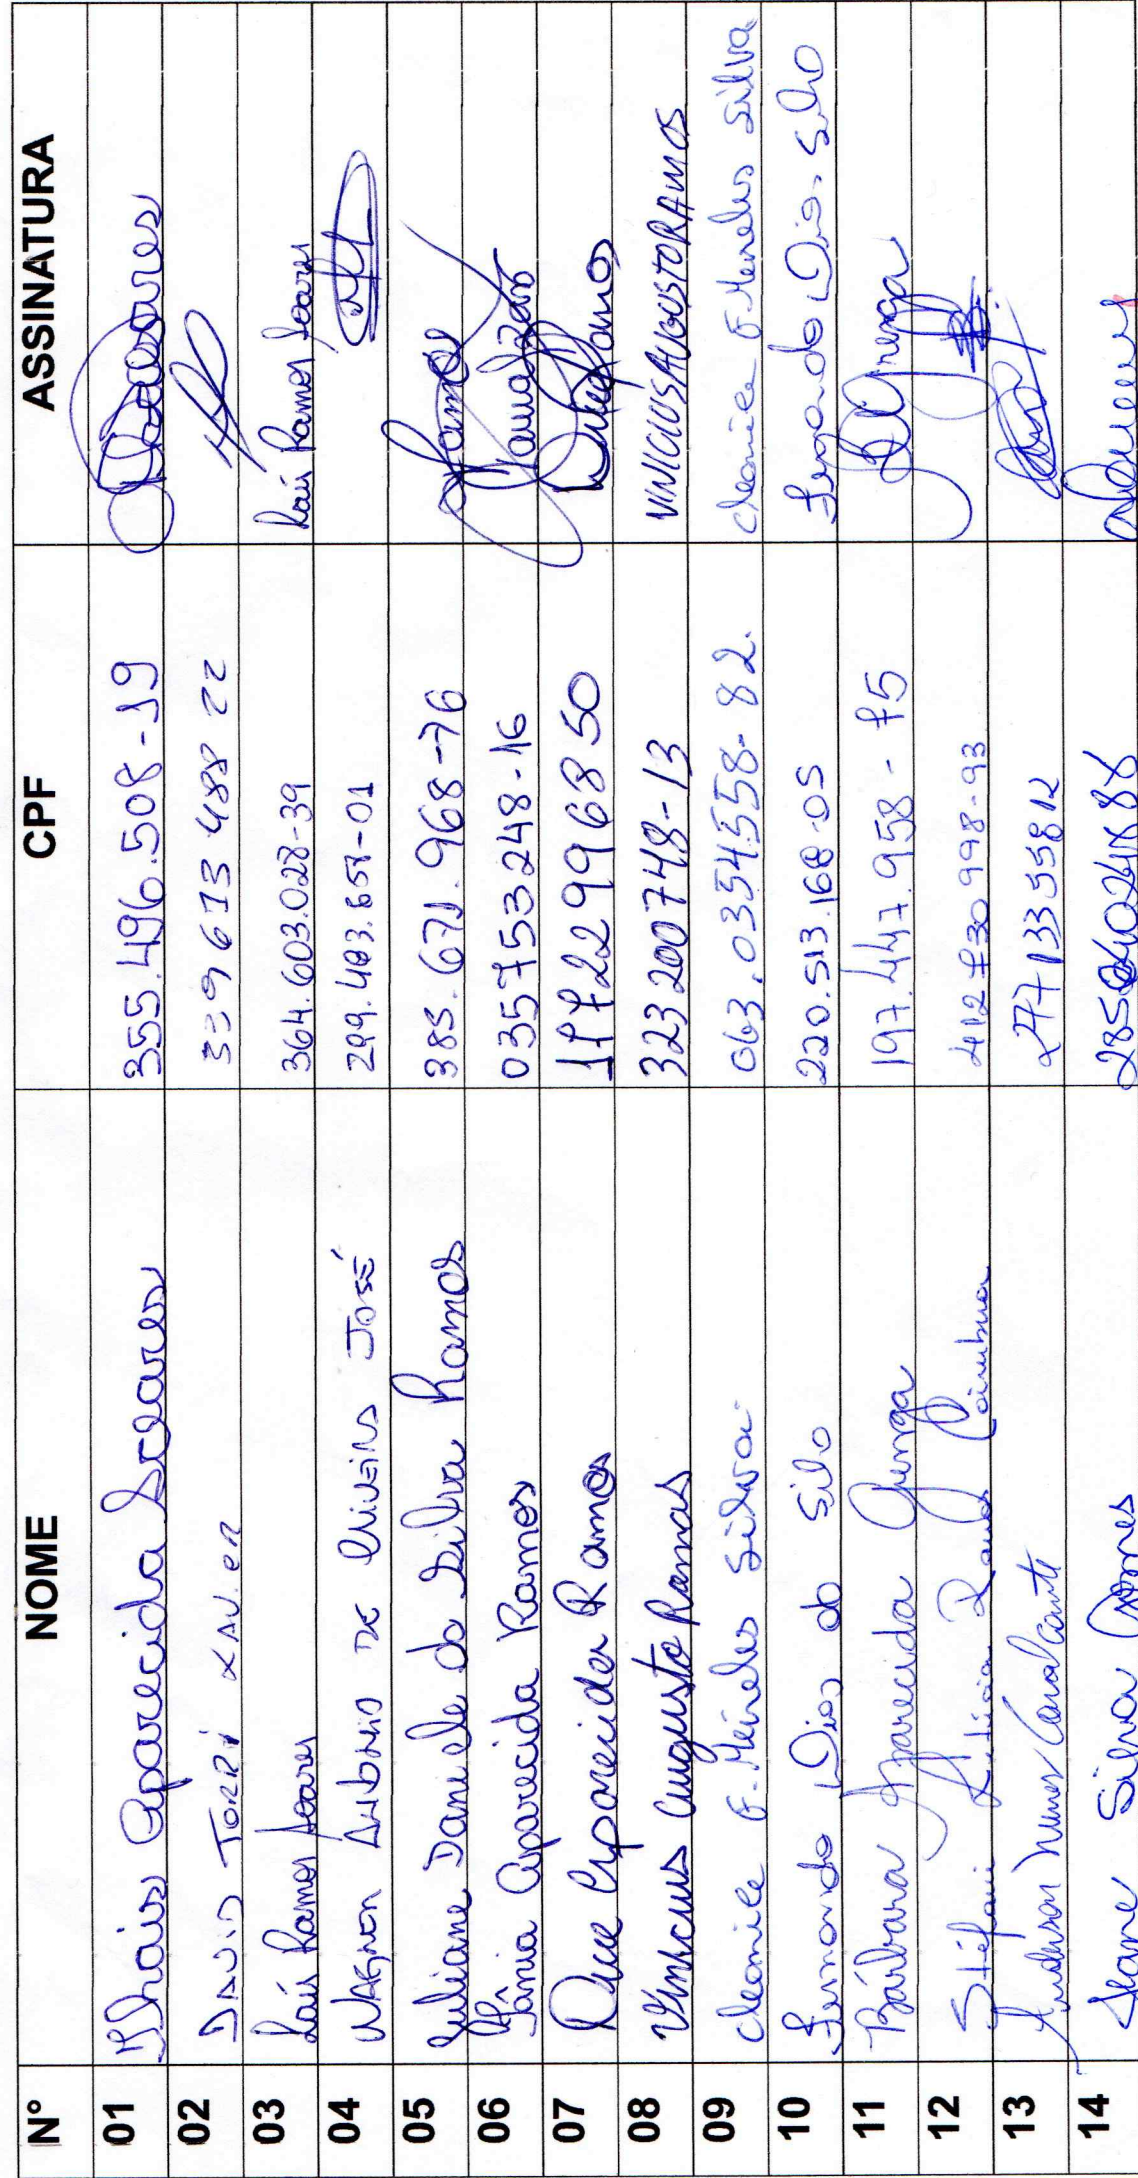 N° NOME CPF ASSINATURA
01 Thais Aparecida Soares 355.496.508-19 Soares
02 DAVID JORRI XAVIER 339 613 488 22
03 Laís Ramos Soares 364.603.028-39 Laís Ramos Soares
04 WAGNER ANTONIO DE JOSÉ 299.483.658-01
05 Juliane Daniele da Silva Ramos 385.671.968-76 Ramos
06 Tânia Aparecida Ramos 035753248-16
07 Aparecida Ramos 177229968 50 Ramos
08 Vinicius Augusto Ramos 323 200748-13 VINICIUS AUGUSTO RAMOS
09 Cleonice F. Mendes Silva 063.0354558-82. Cleonice F. Mendes Silva
10 Fernando Dias da Silva 220.513.168-05 Fernando Dias Silva
11 Bárbara Aparecida Grenga 197.447.958-75 Grenga
12 Stéfani Letícia Ramos Coimbra 412 730 998-93
13 Anderson Nunes Cavalcante 277133558 12
14 Silva Gomes